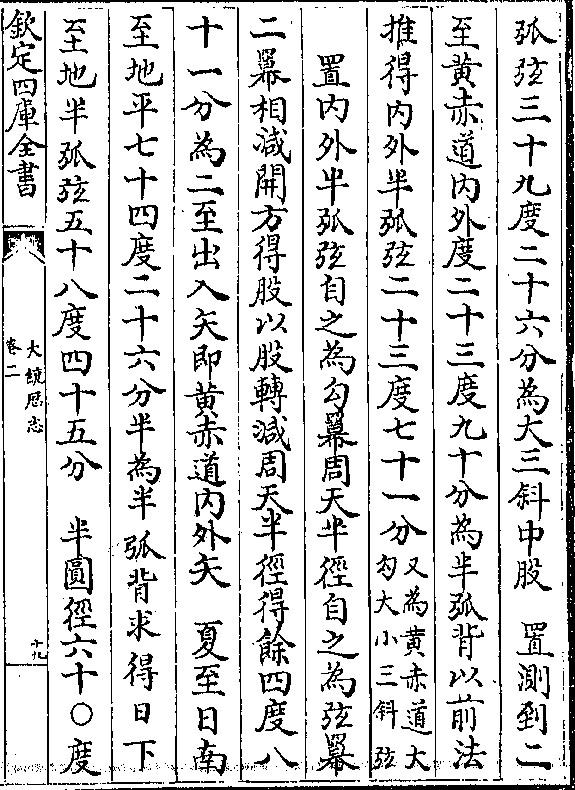 弧弦三十九度二十六分為大三斜中股　置測到二
至黃赤道內外度二十三度九十分為半弧背以前法
推得內外半弧弦二十三度七十一分又為黃赤道大
勾大小三斜弦
置內外半弧弦自之為勾羃周天半徑自之為弦羃
二羃相減開方得股以股轉減周天半徑得餘四度八
十一分為二至出入矢即黃赤道內外矢　夏至日南
至地平七十四度二十六分半為半弧背求得日下
至地半弧弦五十八度四十五分　半圓徑六十〇度
欽定四庫全書
大統厯志
卷二
十九